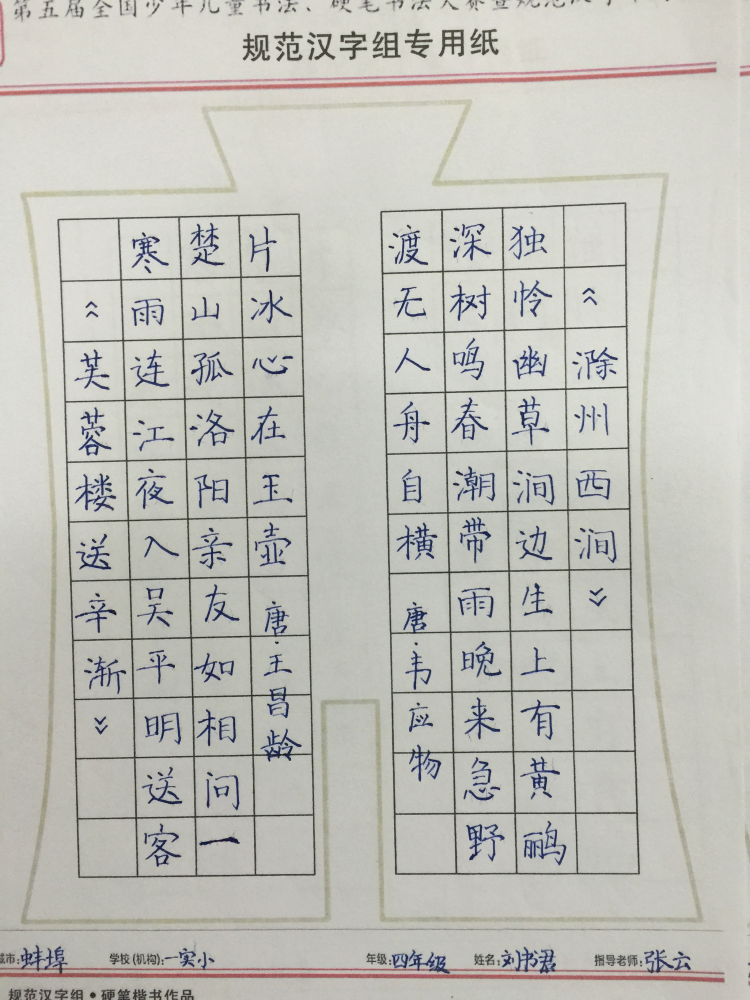 第五届全国少年儿童书法、硬笔书法大赛暨规范汉字
规范汉字组专用纸
《滁州西涧》
独怜幽草涧边生上有黄鹂
深树鸣春潮带雨晚来急野
渡无人舟自横 唐·韦应物
《芙蓉楼送辛渐》
寒雨连江夜入吴平明送客
楚山孤洛阳亲友如相问一
片冰心在玉壶 唐·王昌龄
城市:蚌埠 学校(机构):一实小 年级:四年级 姓名:刘书君 指导老师:张云
规范汉字组•硬笔楷书作品